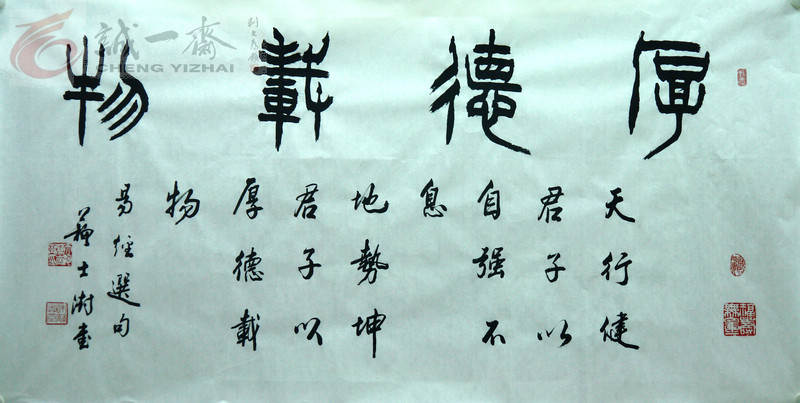 厚德載物
天行健
君子以
自強不
息
地勢坤
君子以
厚德載
物
易經選句
蘇士澍書
誠一齋
CHENG YIZHAI